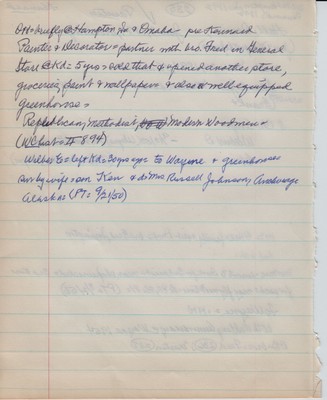 Ott = briefly @ Hampton Ia & Omaha pre Kennard
Painter & Decorator = partner with bro. Fred in General
Store @ Kd = 5 yrs = sold that & opened another store,
groceries, paint & wallpaper & also a well equipped
greenhouse =
Republican, Methodist, Modern Woodmen =
(WC Hist = 894)
Wilber = left Kd = 30 yrs ago to Wayne & greenhouse
surv by wife = son Ken & d = Mrs Russell Johnson, Anchorage
Alaska = (PT = 9/21/50)